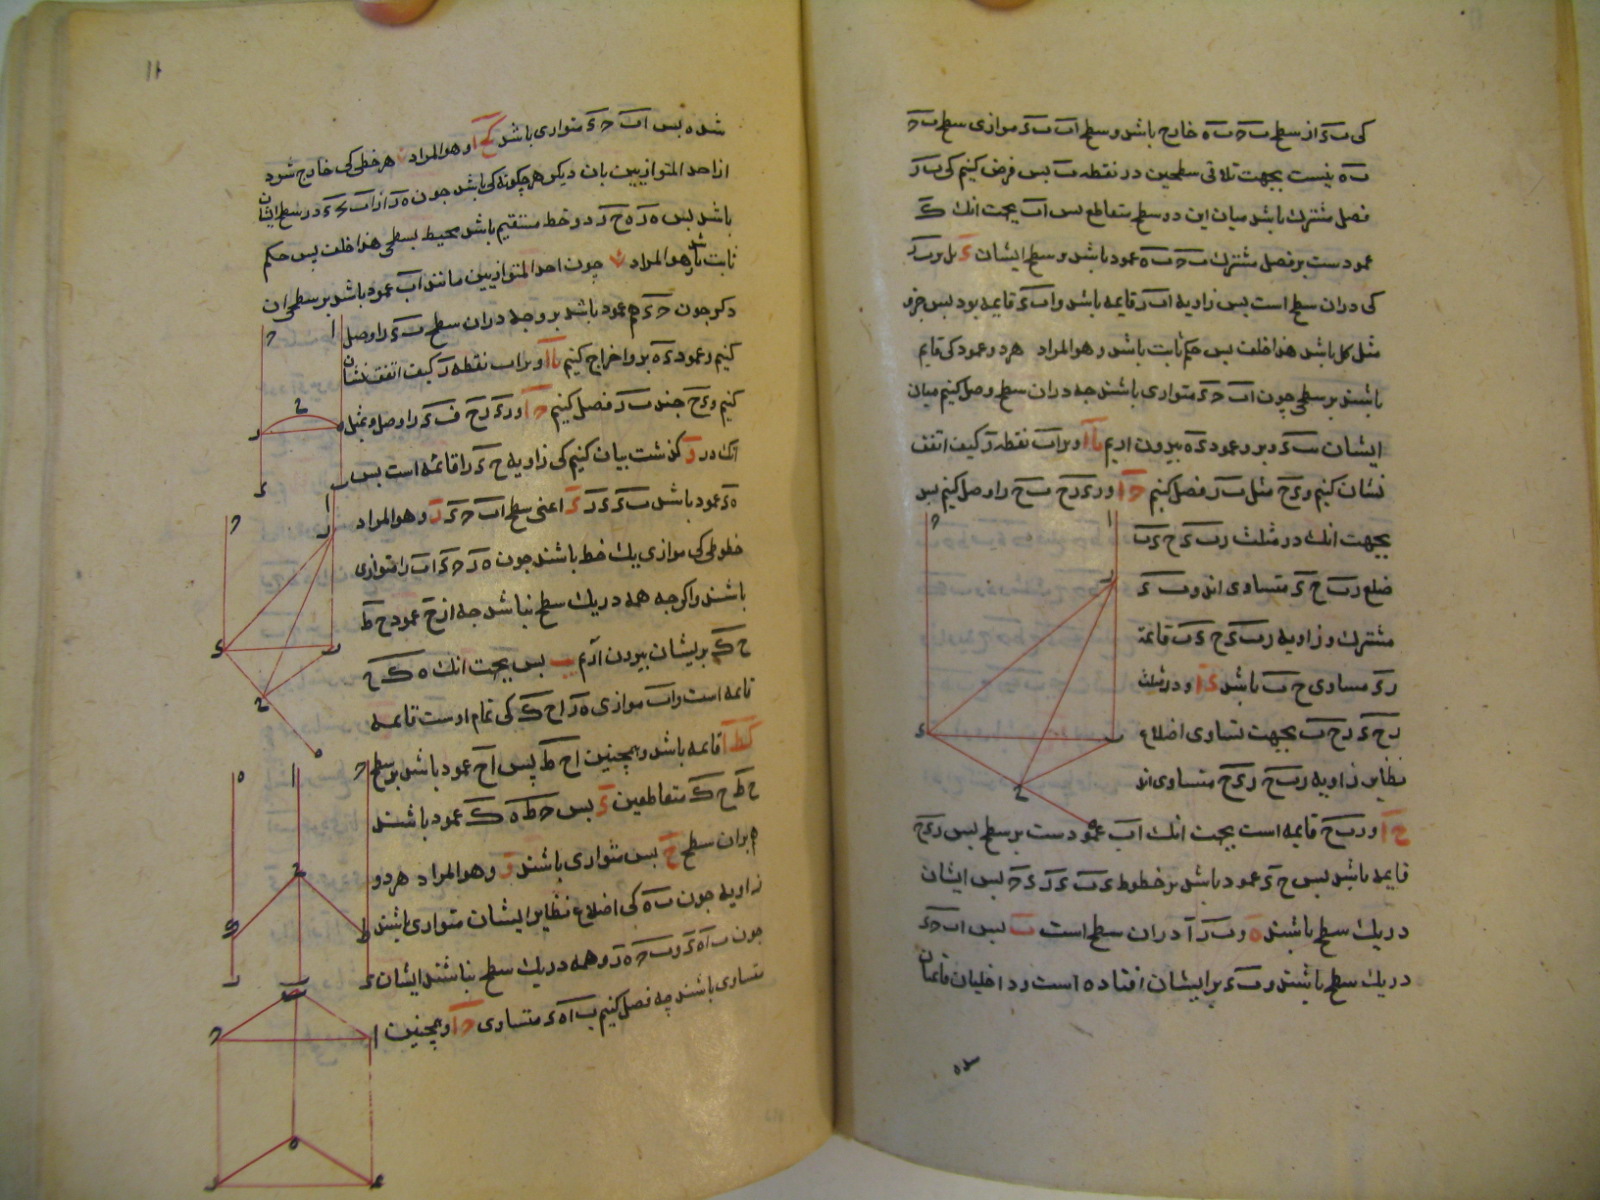 کی ب ء از سطح ب ح ب ه خارج باشد و سطح اب ب ء موازی سطح ب ح
ب ه نیست بجهت تلاقی سطحین در نقطه ب بس فرض کنیم کی ب ر
فصل مشترك باشد میان این دو سطح متقاطع بس اب بجهت انك ك
عمودست بر فصل مشترك ب ح ب ه عمود باشد بر سطح ایشان ء بل بر ب ر
کی در ان سطح است بس زاویه اب ر قایمه باشد و اب ء قایمه بود بس جزو
مثل کل باشد هذا خلف بس حکم ثابت باشد و هو المراد هر دو عمود کی قایم
باشند بر سطحی چون اب ح ء متوازی باشند جه در ان سطح وصل کنیم میان
ایشان ب ء و بر و عمود ء ه بیرون اریم یا ا و بر اب نقطه ر کیف اتفق
نشان کنیم و ء ح مثل ب ر فصل کنیم ح ا و ر ء ر ح ب ح را وصل کنیم بس
بجهت انك در مثلث ر ب ء ح ء ب
ضلع ر ب ح ء متساوی اند و ب ء
مشترك و زاویه ر ب ء ح ء ب قایمه
ر ء مساوی ح ب باشد ء ا و در مثلث
ر ح ء ر ح ب بجهت تساوی اضلاع
نظایر زاویه ر ب ح ر ء ح متساوی اند
ح ا و ر ب ح قایمه است بجهت انك اب عمودست بر سطح بس ر ء ح
قایمه باشد بس ح ء عمود باشد بر خطوط ء ب ء ر ء ح بس ایشان
در یك سطح باشند ه و ب ر ا در ان سطح است ب بس اب ح ء
در یك سطح باشند و ب ء بر ایشان افتاده است و داخلیان قایمتان
شده
۱۱
شده بس اب ح ء متوازی باشد کح ا و هو المراد هر خطی کی خارج شود
از احد المتوازیین بان دیکر هر چکونه کی باشد جون ه ر از اب ح ء در سطح ایشان
باشد بس ه ر ه ح ر دو خط مستقیم باشد محیط بسطحی هذا خلف بس حکم
ثابت شد و هو المراد چون احد المتوازیین مانند اب عمود باشد بر سطحی ان
دکر جون ح ء هم عمود باشد برو جه در ان سطح ب ء را وصل
کنیم و عمود ء ه برو اخراج کنیم یا ا و بر اب نقطه ر کیف اتفق نشان
کنیم و ء ح جند ب ر فصل کنیم ح ا و ر ء ر ح ب ء را وصل و بمثل
انك در و کذشت بیان کنیم کی زاویه ح ء ر قائمه است بس
ه ء عمود باشد ب ء ء ر ء اعنی سطح اب ح ء ر و هو المراد
خطوطی کی موازی یك خط باشند جون ه ر ح ء اب را متوازی
باشند و اکرجه همه در یك سطح نباشد جه از ح عمود ح ط
ح ك بر یشان بیرون آرم یب بس بجهت انك ه ك ح
قایمه است و اب موازی ه ر ا ح ك کی تمام اوست قایمه
کط ا قایمه باشد و همچنین ا ح ط بس ا ح عمود باشد بر سطح
ح ط ح ك متقاطعین ء بس ح ط ه ك عمود باشند
بران سطح ح بس متوازی باشند و و هو المراد هر دو
زاویه جون ب ه کی اضلاع نظایر ایشان متوازی باشند
جون ب ا ه ء و ب ح ه ر و همه در یك سطح نباشند ایشان
متساوی باشند چه فصل کنیم ب ا ه ء متساوی ح ا و همچنین